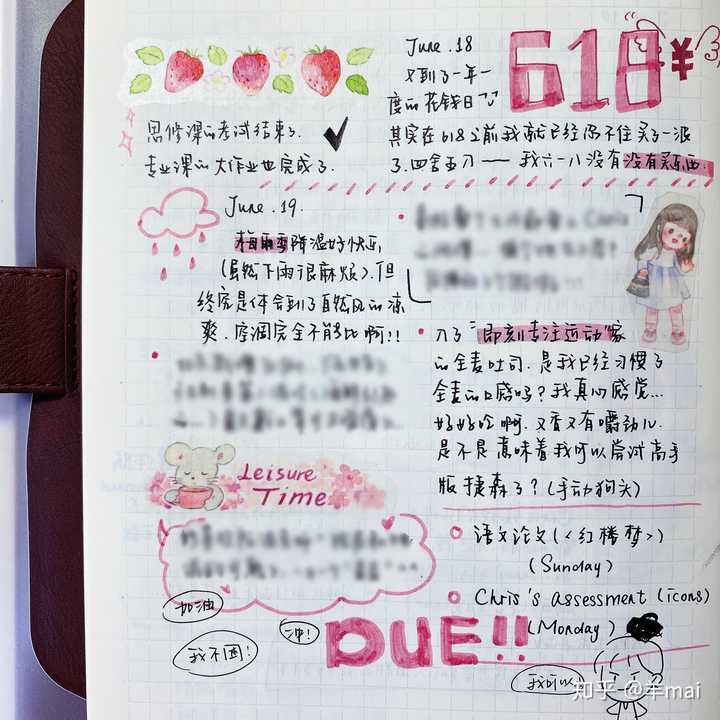 June.18
又到了一年一
度的花钱日
618
¥
思修课的考试结束了.
专业课的大作业也完成了.
其实在618之前我就已经忍不住买了一波
了.四舍五入——我六一八没有没有买东西.
June.19.
梅雨季降温好快乐
(虽然下雨很麻烦).但
终究是体会到了自然风的凉
爽.空调完全不能比啊!!
入了"即刻专注运动家"
的全麦吐司.是我已经习惯了
全麦的口感吗?我真心感觉...
好好吃啊.又香又有嚼劲儿.
是不是意味着我可以尝试高手
版捷森了?(手动狗头)
Leisure
Time
语文论文(《红楼梦》)
(Sunday)
Chris's assessment (icons)
(Monday)
加油
我不困!
冲!
DUE!!
我可以
知乎 @羊mai